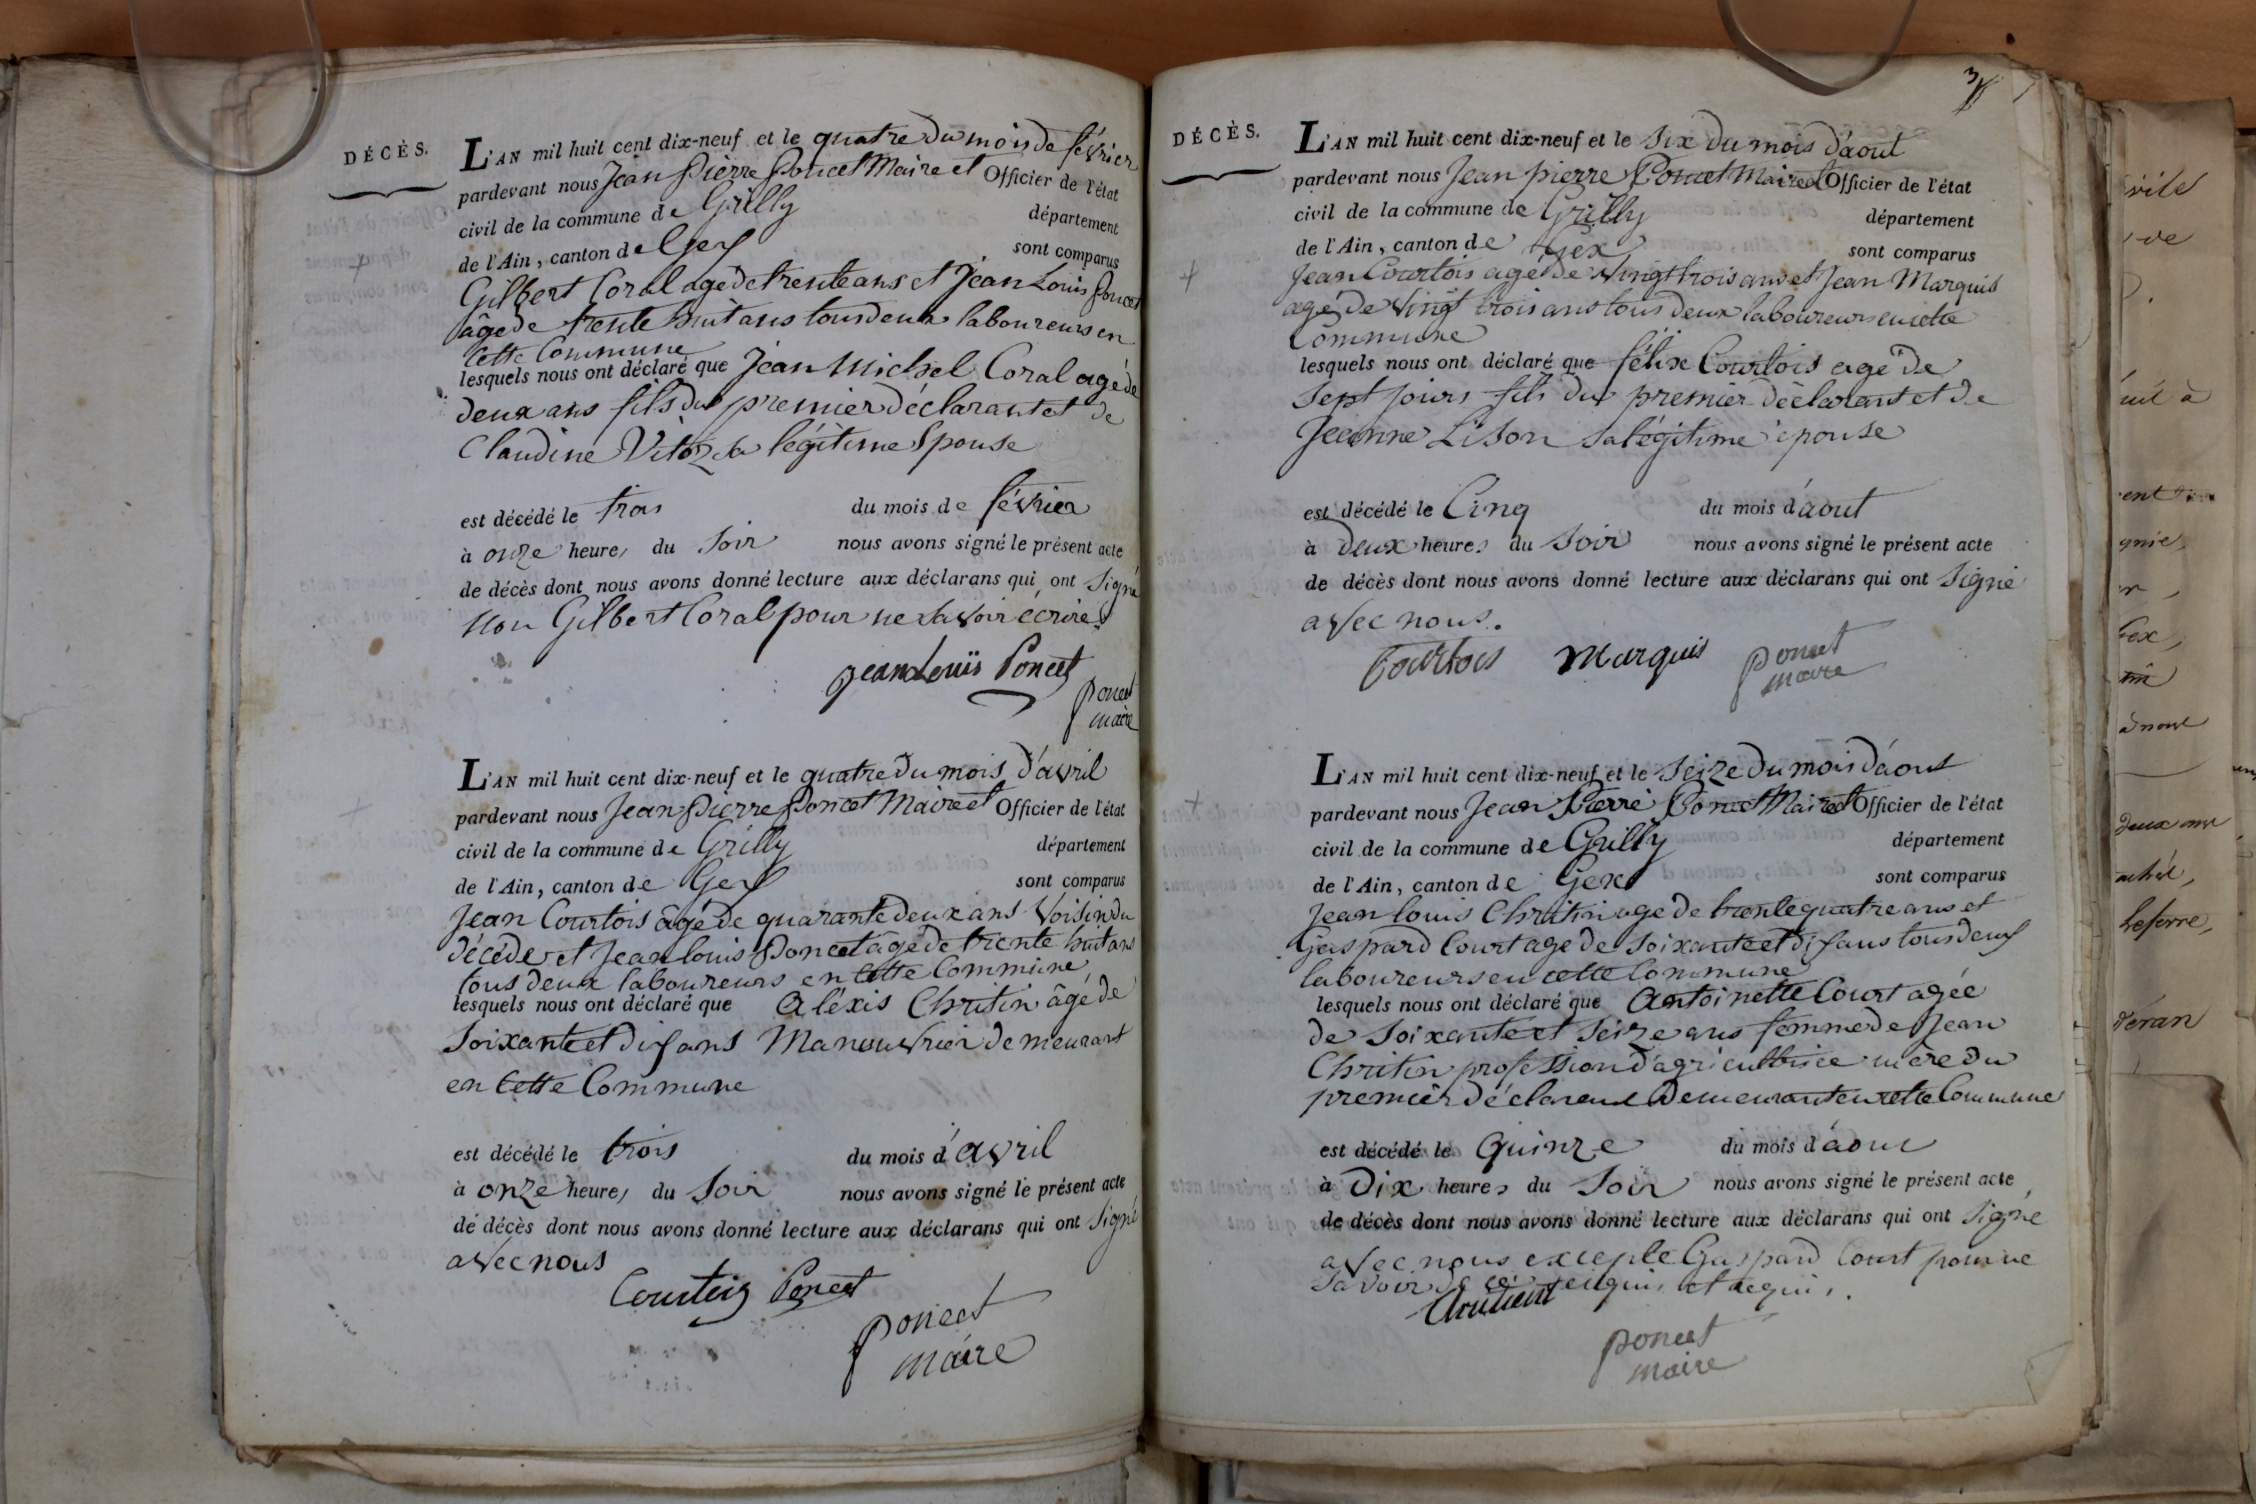 DÉCÈS.
L'AN mil huit cent dix-neuf et le quatre du mois de février
pardevant nous Jean Pierre Poncet Maire et Officier de l'état
civil de la commune de Grilly département
de l'Ain, canton de Gex sont comparus
Gilbert Coral agé de trente ans et Jean Louis Poncet
âgé de trente huit ans tous deux laboureurs en
cette Commune
lesquels nous ont déclaré que Jean Michel Coral agé de
deux ans fils du premier déclarant et de
Claudine Vitoz sa légitime Epouse
est décédé le trois du mois de février
à onze heures du Soir nous avons signé le présent acte
de décès dont nous avons donné lecture aux déclarans qui ont Signé
non Gilbert Coral pour ne savoir écrire.
Jean Louïs Poncet
Poncet
maire
L'AN mil huit cent dix-neuf et le quatre du mois d'avril
pardevant nous Jean Pierre Poncet Maire et Officier de l'état
civil de la commune de Grilly département
de l'Ain, canton de Gex sont comparus
Jean Courtois âgé de quarante deux ans Voisin du
décédé et Jean louis Poncet âgé de trente huit ans
tous deux laboureurs en cette Commune
lesquels nous ont déclaré que Aléxis Chritin âgé de
Soixante et dix ans Manouvrier demeurant
en Cette Commune
est décédé le trois du mois d'avril
à onze heures du Soir nous avons signé le présent acte
de décès dont nous avons donné lecture aux déclarans qui ont Signé
avec nous
Courtois Poncet
Poncet
maire
3
DÉCÈS.
L'AN mil huit cent dix-neuf et le Six du mois d'aout
pardevant nous Jean pierre Poncet Maire et Officier de l'état
civil de la commune de Grilly département
de l'Ain, canton de Gex sont comparus
Jean Courtois agé de Vingt trois ans et Jean Marquis
agé de Vingt trois ans tous deux laboureurs en cette
Commune
lesquels nous ont déclaré que félix Courtois agé de
Sept jours fils du premier déclarant et de
Jeanne Lison Sa légitime épouse
est décédé le Cinq du mois d'aout
à Deux heures du Soir nous avons signé le présent acte
de décès dont nous avons donné lecture aux déclarans qui ont Signé
avec nous.
Courtois Marquis Poncet
maire
L'AN mil huit cent dix-neuf et le Seize du mois d'aout
pardevant nous Jean Pierre Poncet Maire et Officier de l'état
civil de la commune de Grilly département
de l'Ain, canton de Gex sont comparus
Jean louis Chritin age de trente quatre ans et
Gaspard Court age de Soixante et dix ans tous deux
laboureurs en cette Commune
lesquels nous ont déclaré que Antoinette Court agée
de Soixante et Seize ans femme de Jean
Chritin profession d'agricultrice mère du
premier déclarant Demeurant en cette Commune
est décédé le Quinze du mois d'aout
à Dix heures du Soir nous avons signé le présent acte
de décès dont nous avons donné lecture aux déclarans qui ont Signé
avec nous excepte Gaspard Court pour ne
Savoir de ce enquis et requis.
Poncet
maire